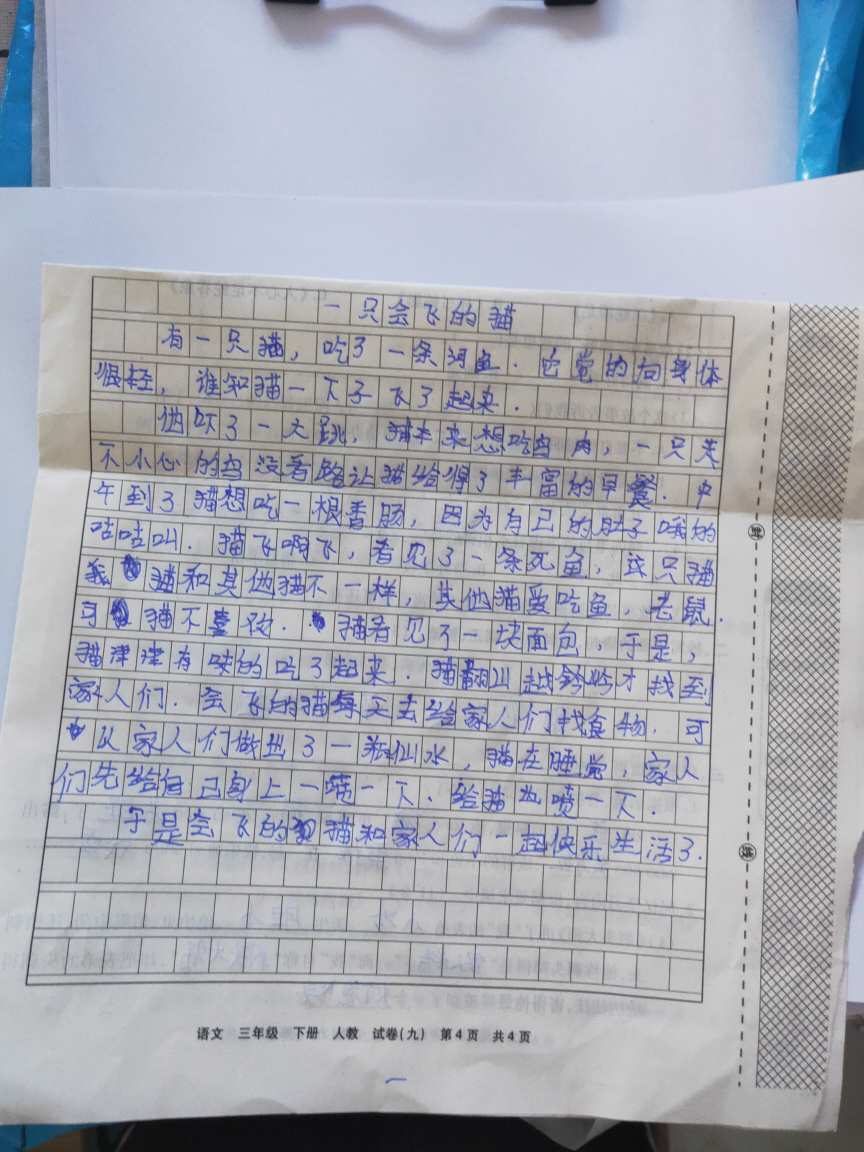 一只会飞的猫
有一只猫，吃了一条河鱼．它觉的向身体
很轻，谁知猫一下子飞了起来．
他吓了一大跳，猫本来想吃鸟肉，一只
不小心的鸟没看路让猫给得了丰富的早餐．中
午到了猫想吃一根香肠，因为自己的肚子饿的
咕咕叫．猫飞啊飞，看见了一条死鱼，这只猫
猫和其他猫不一样，其他猫爱吃鱼，老鼠．
可猫不喜欢．猫看见了一块面包，于是，
猫津津有味的吃了起来．猫翻山越岭才找到
家人们．会飞的猫每天去给家人们找食物．可
从家人们做出了一瓶仙水，猫在睡觉，家人
们先给自己身上一喷一下．给猫也喷一下．
于是会飞的猫和家人们一起快乐生活了．
语文 三年级 下册 人教 试卷(九) 第4页 共4页
封
线